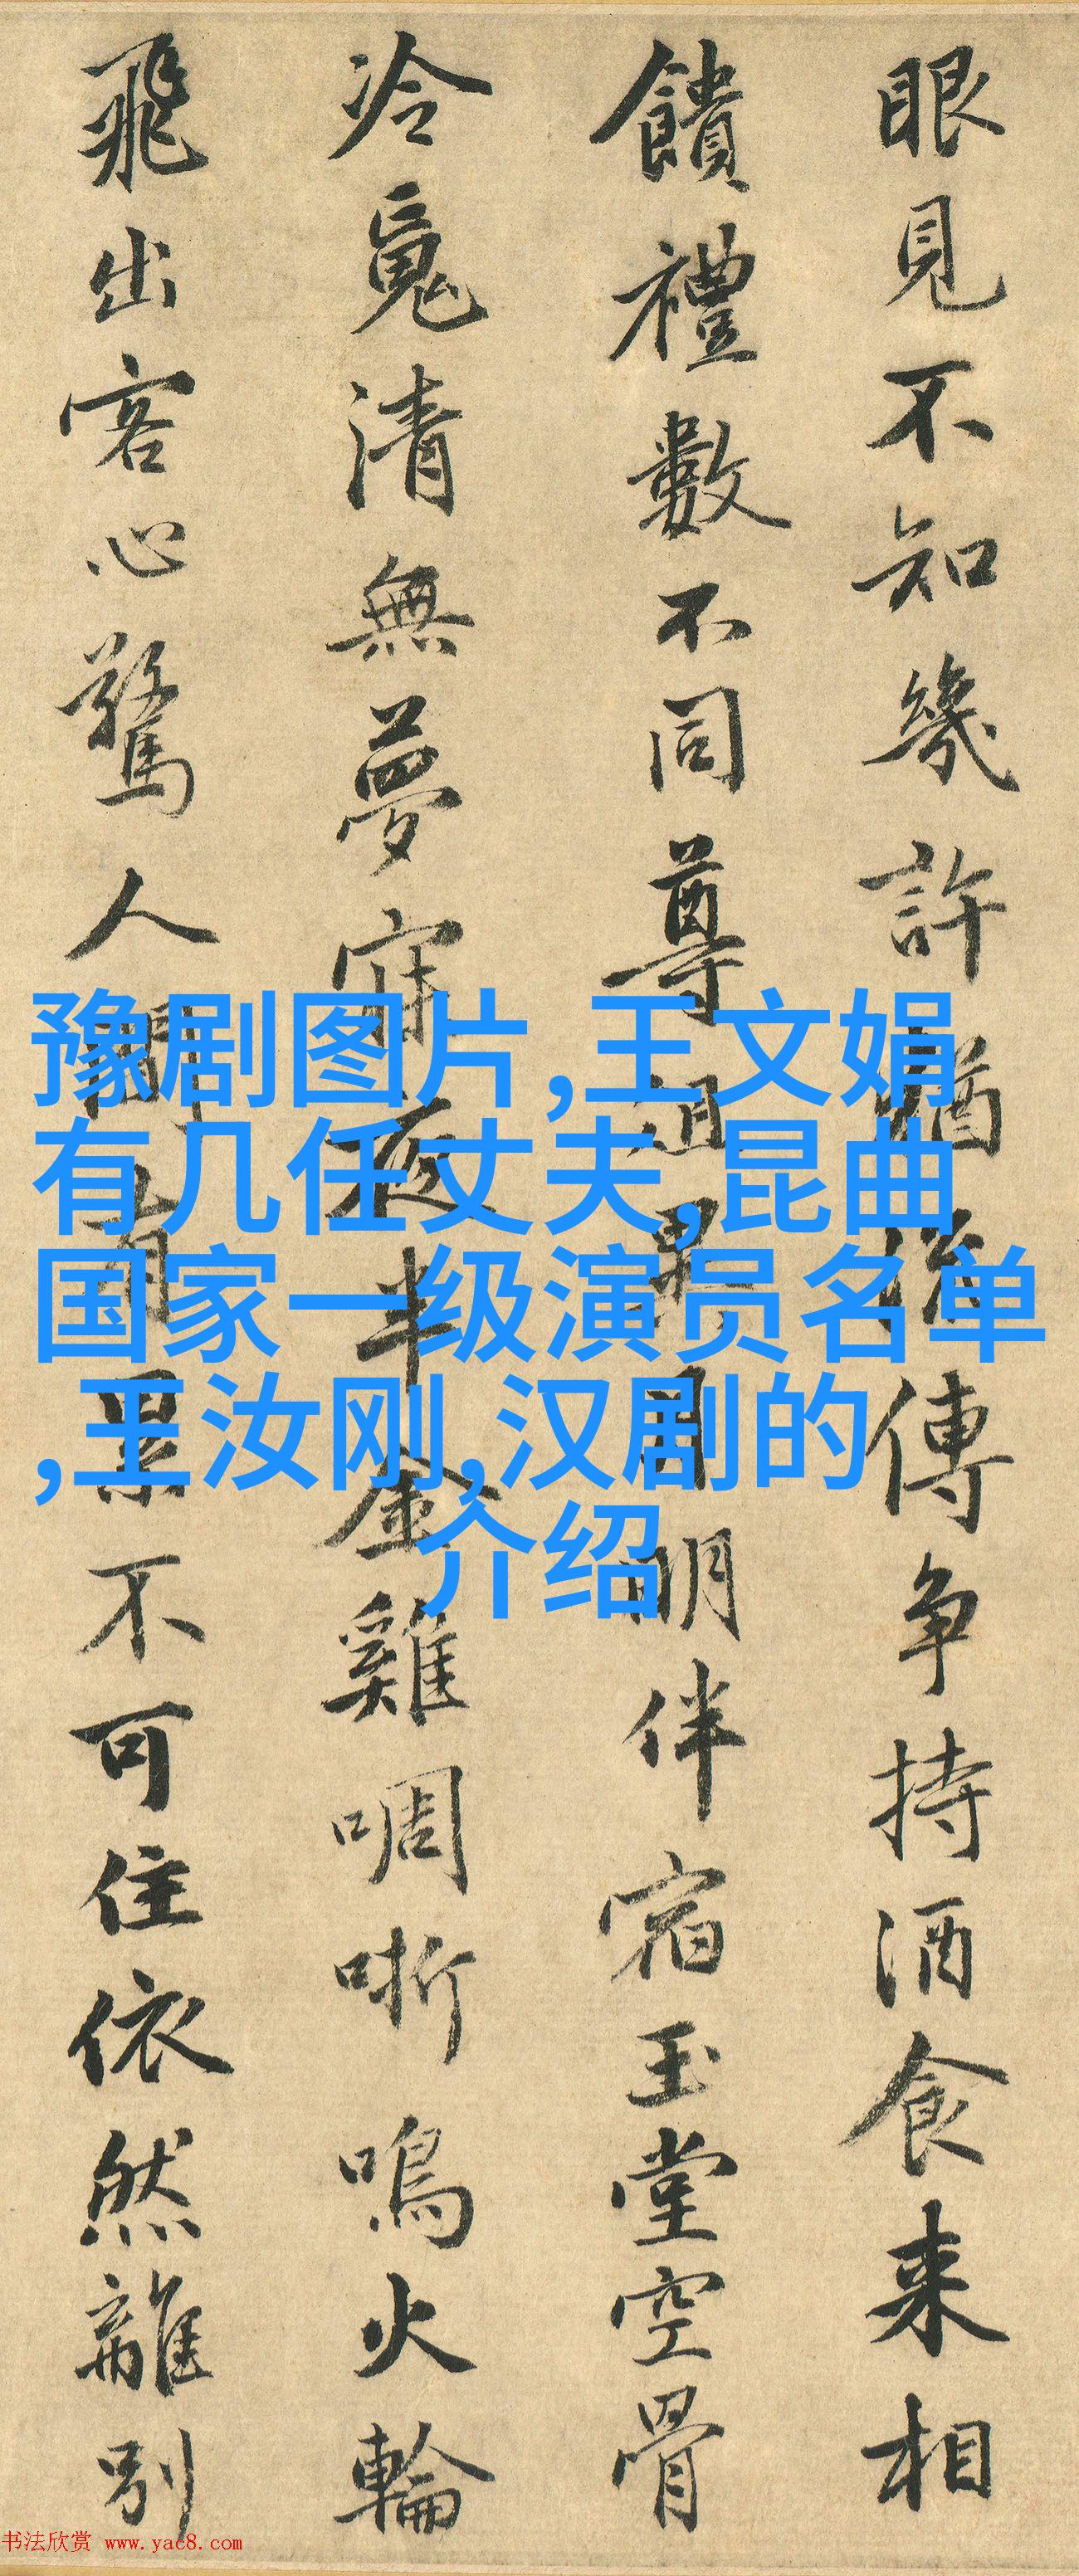 眼見不知幾許猶流傳争持酒食来相
饋禮數不同尊俎異月明伴宿玉堂空骨
冷魂清無夢寐夜半金雞啁哳鳴火輪
飛出客心驚人間有累不可住依然離別
豫剧图片,王文娟
有几任丈夫,昆曲
国家一级演员名单
,王汝刚,汉剧的
介绍
书法欣赏 www.yac8.com